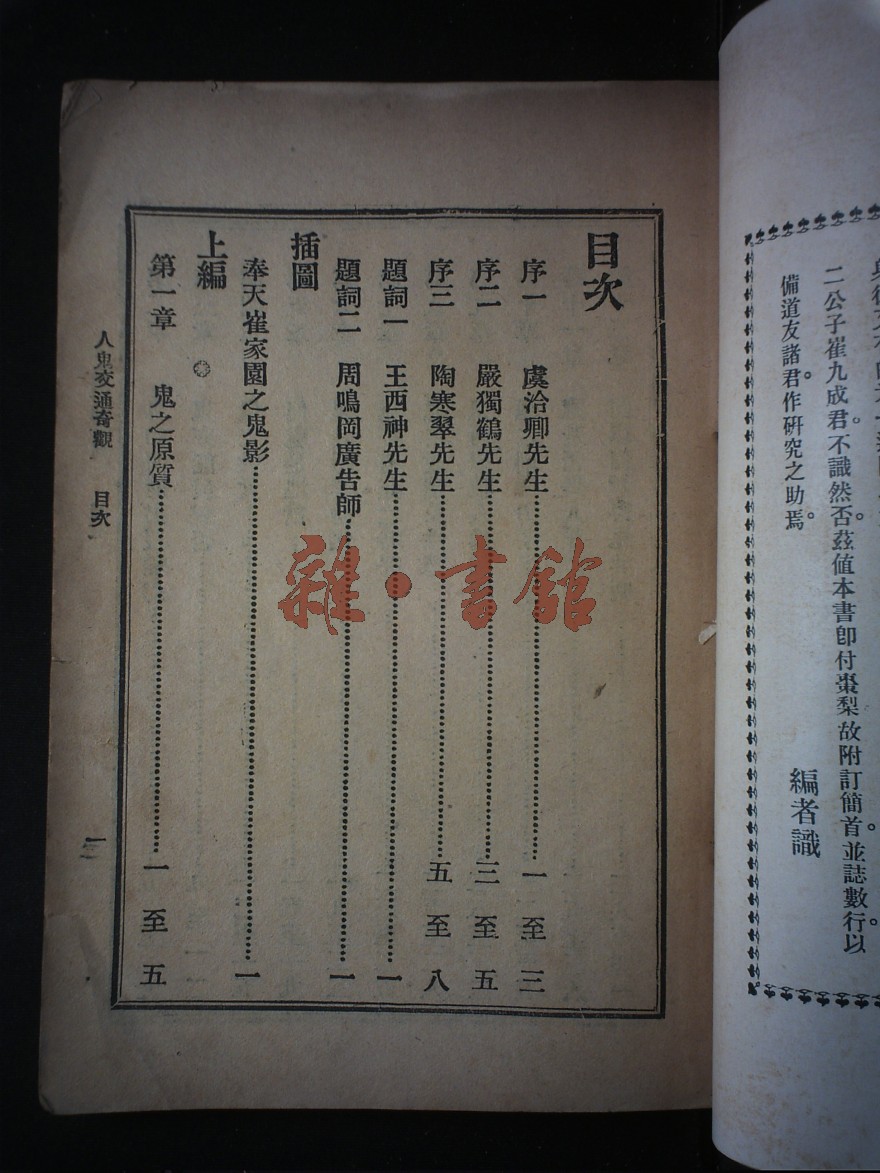 二公子崔九成君。不識然否。茲值本書卽付棗梨故附訂簡首。並誌數行以。
備道友諸君。作研究之助焉。
編者識
目次
序一 虞洽卿先生 一至三
序二 嚴獨鶴先生 三至五
序三 陶寒翠先生 五至八
題詞一 王西神先生 一
題詞二 周鳴岡廣告師 一
插圖
奉天崔家園之鬼影 一
上編
第一章 鬼之原質 一至五
人鬼交通奇觀 目次 一
雜·書館